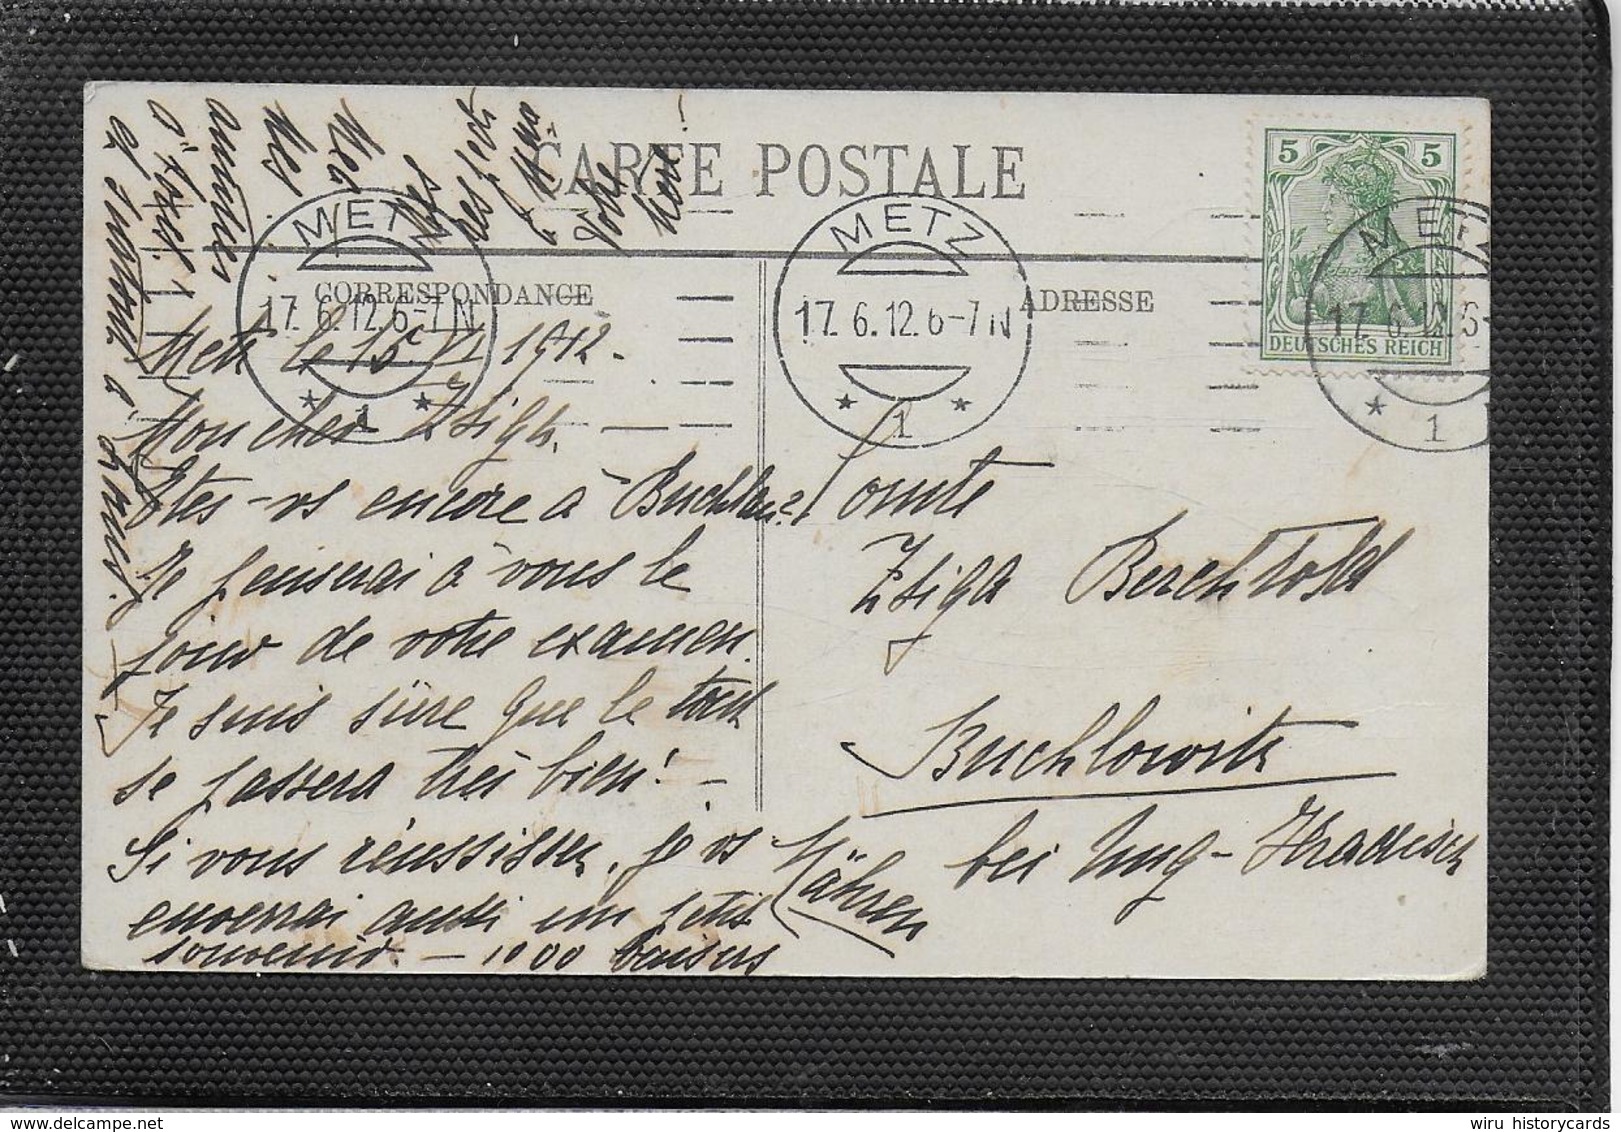 CARTE POSTALE
CORRESPONDANCE
ADRESSE
METZ
17. 6. 12. 6-7 N
* 1 *
METZ
17. 6. 12. 6-7 N
* 1 *
METZ
17. 6. 12. 6-
* 1
5 5
DEUTSCHES REICH
Metz le 15 VI 1912.
Mon cher Zsiga.
Êtes-vs encore à Buchlau?
Je penserai à vous le
jour de votre examen.
Je suis sûre que le tout
se passera très bien! –
Si vous réussissez, je vs
enverrai aussi un petit
souvenir. – 1000 baisers
Mes
amitiés
à
Votre
Comte
Zsiga Berchtold
Buchlowitz
bei Ung-Hradisch
Mähren
wiru historycards